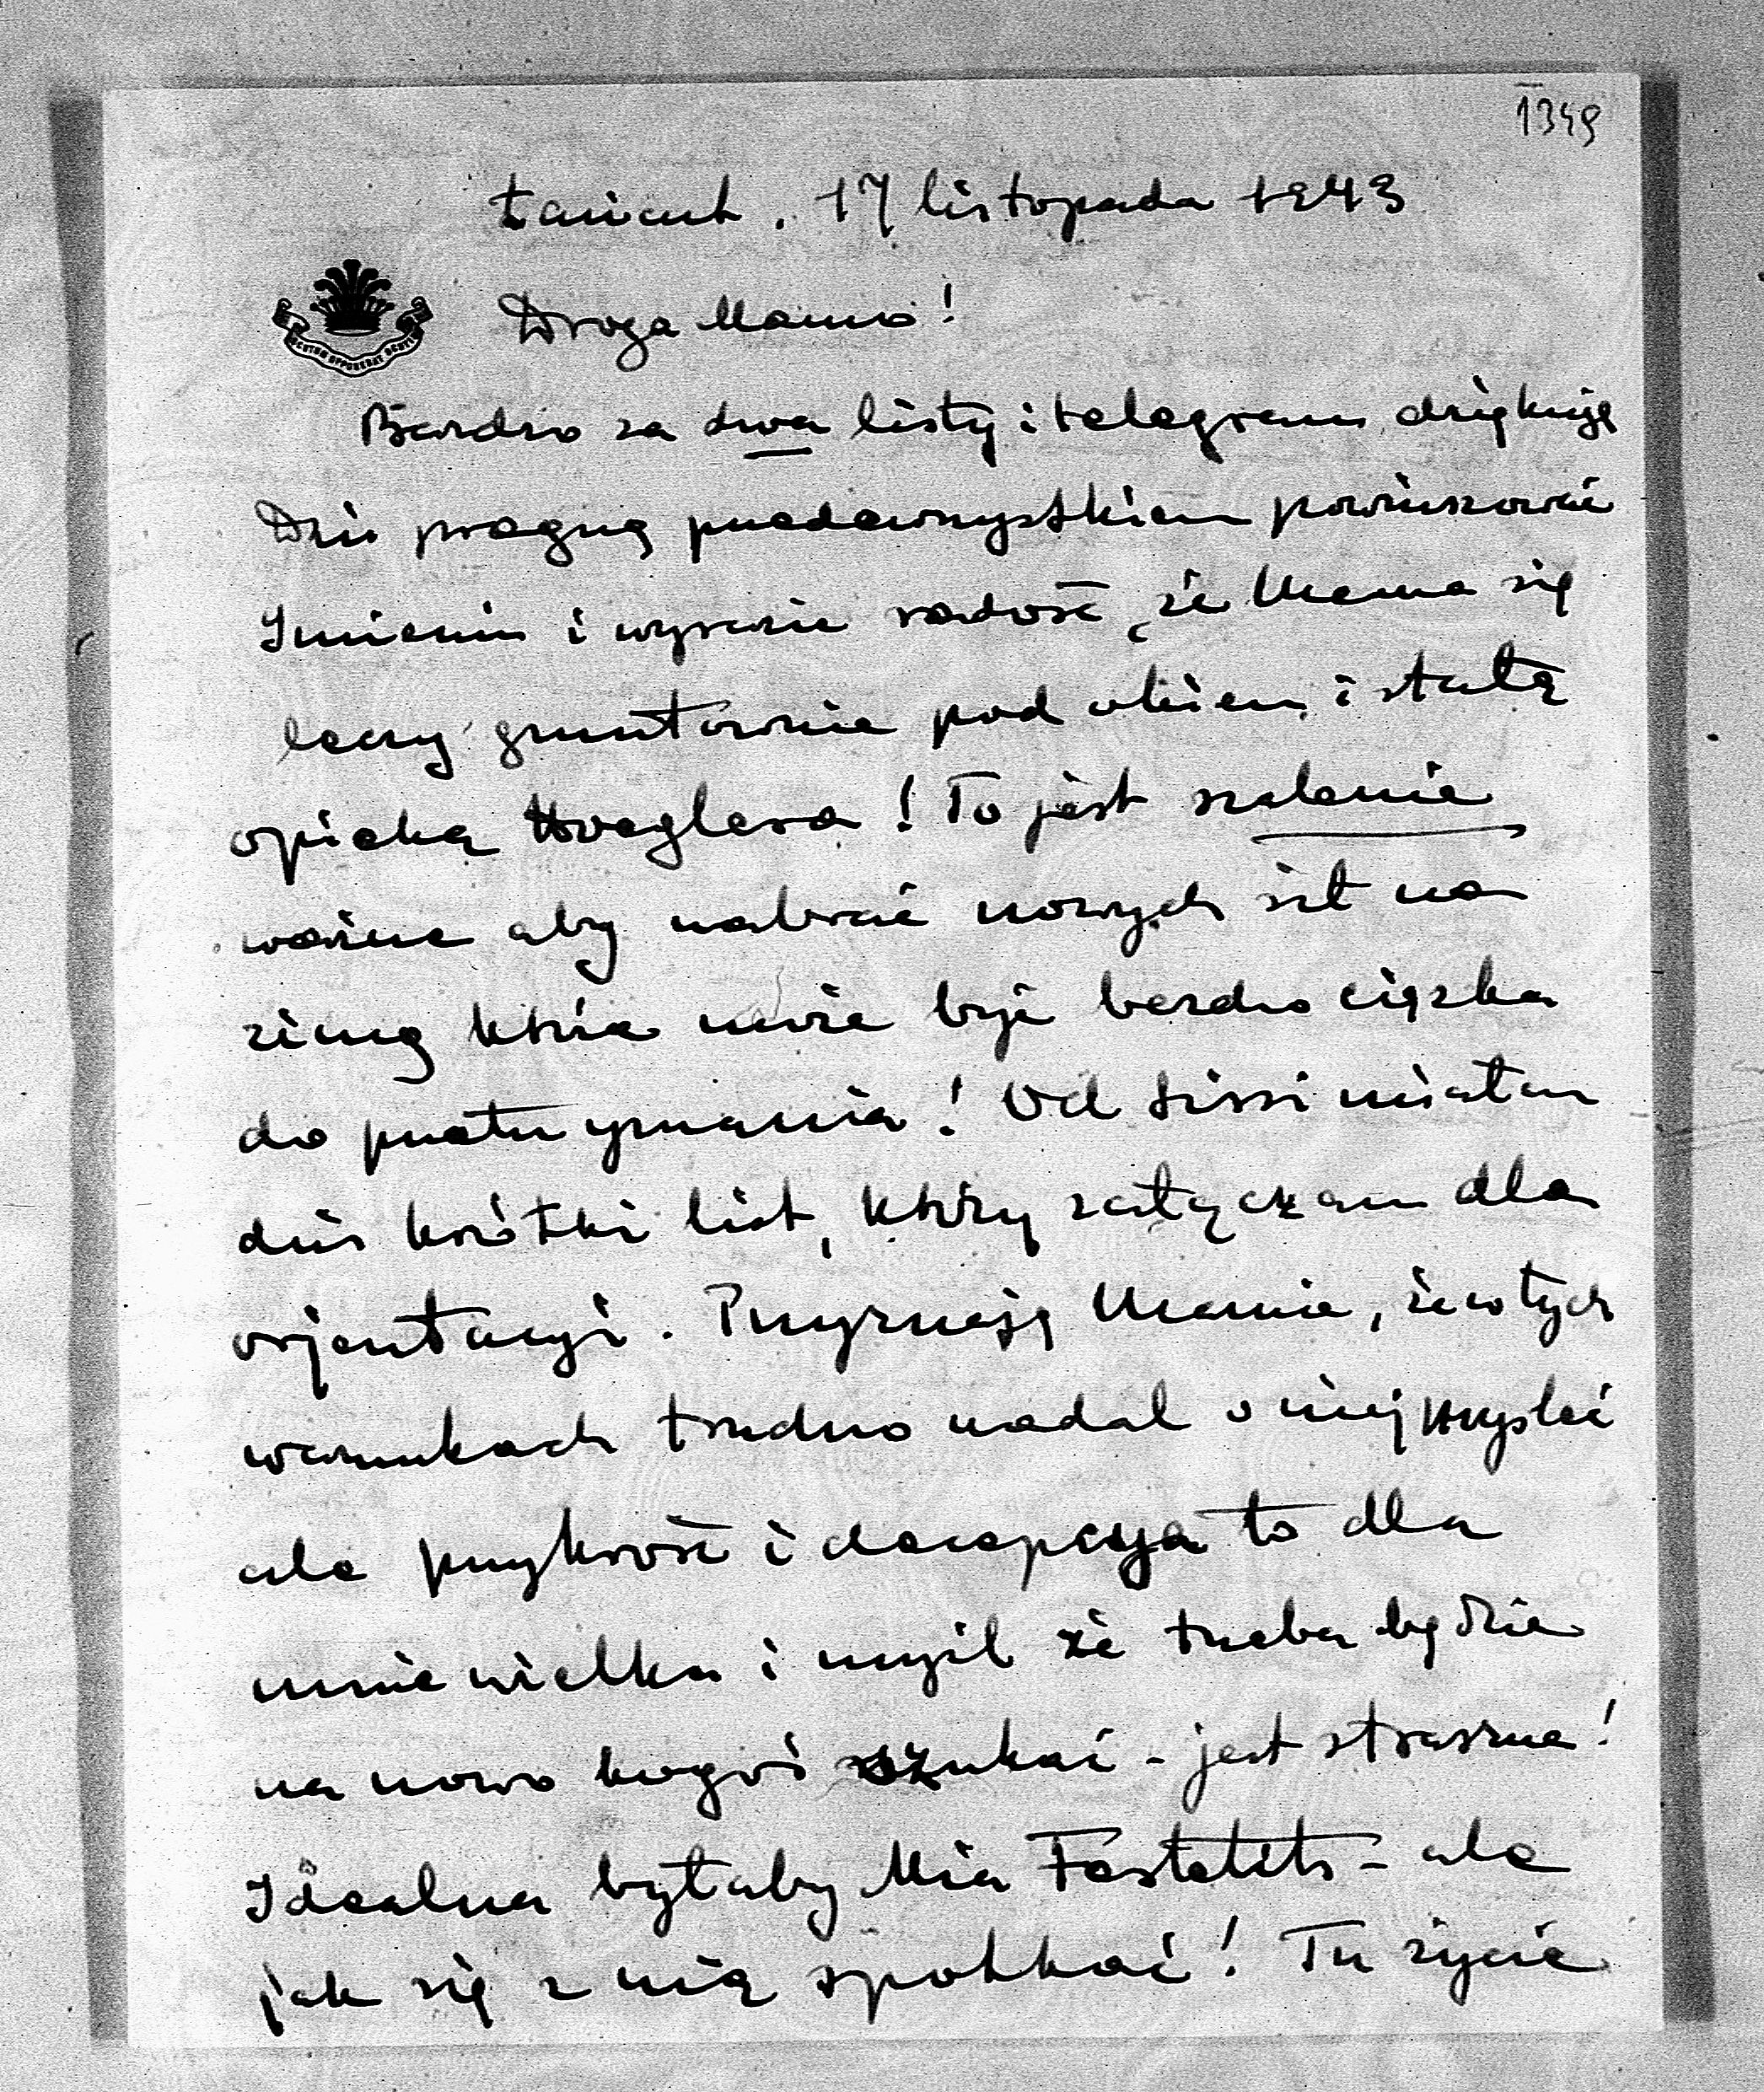 1349
Łańcut. 17 listopada 1943
Droga Mamo!
Bardzo za dwa listy i telegram dziękuję
Dziś pragnę przedewszystkiem powinszować
Imienin i wyrazić radość, że Mama się
leczy gruntownie pod okiem i stałą
opieką! To jest szalenie
ważne aby nabrać nowych sił na
zimę która może być bardzo ciężka
do przetrzymania! Od Sissi miałam
dziś krótki list, który załączam dla
orjentacyi. Przyznaję Mamie, że w tych
warunkach trudno nadal o niej myśleć
ale przykrość i decepcya to dla
mnie wielka i myśl że trzeba będzie
na nowo kogoś szukać - jest straszna!
Idealna byłaby Mia Festetits - ale
jak się z nią spotkać! Tu życie